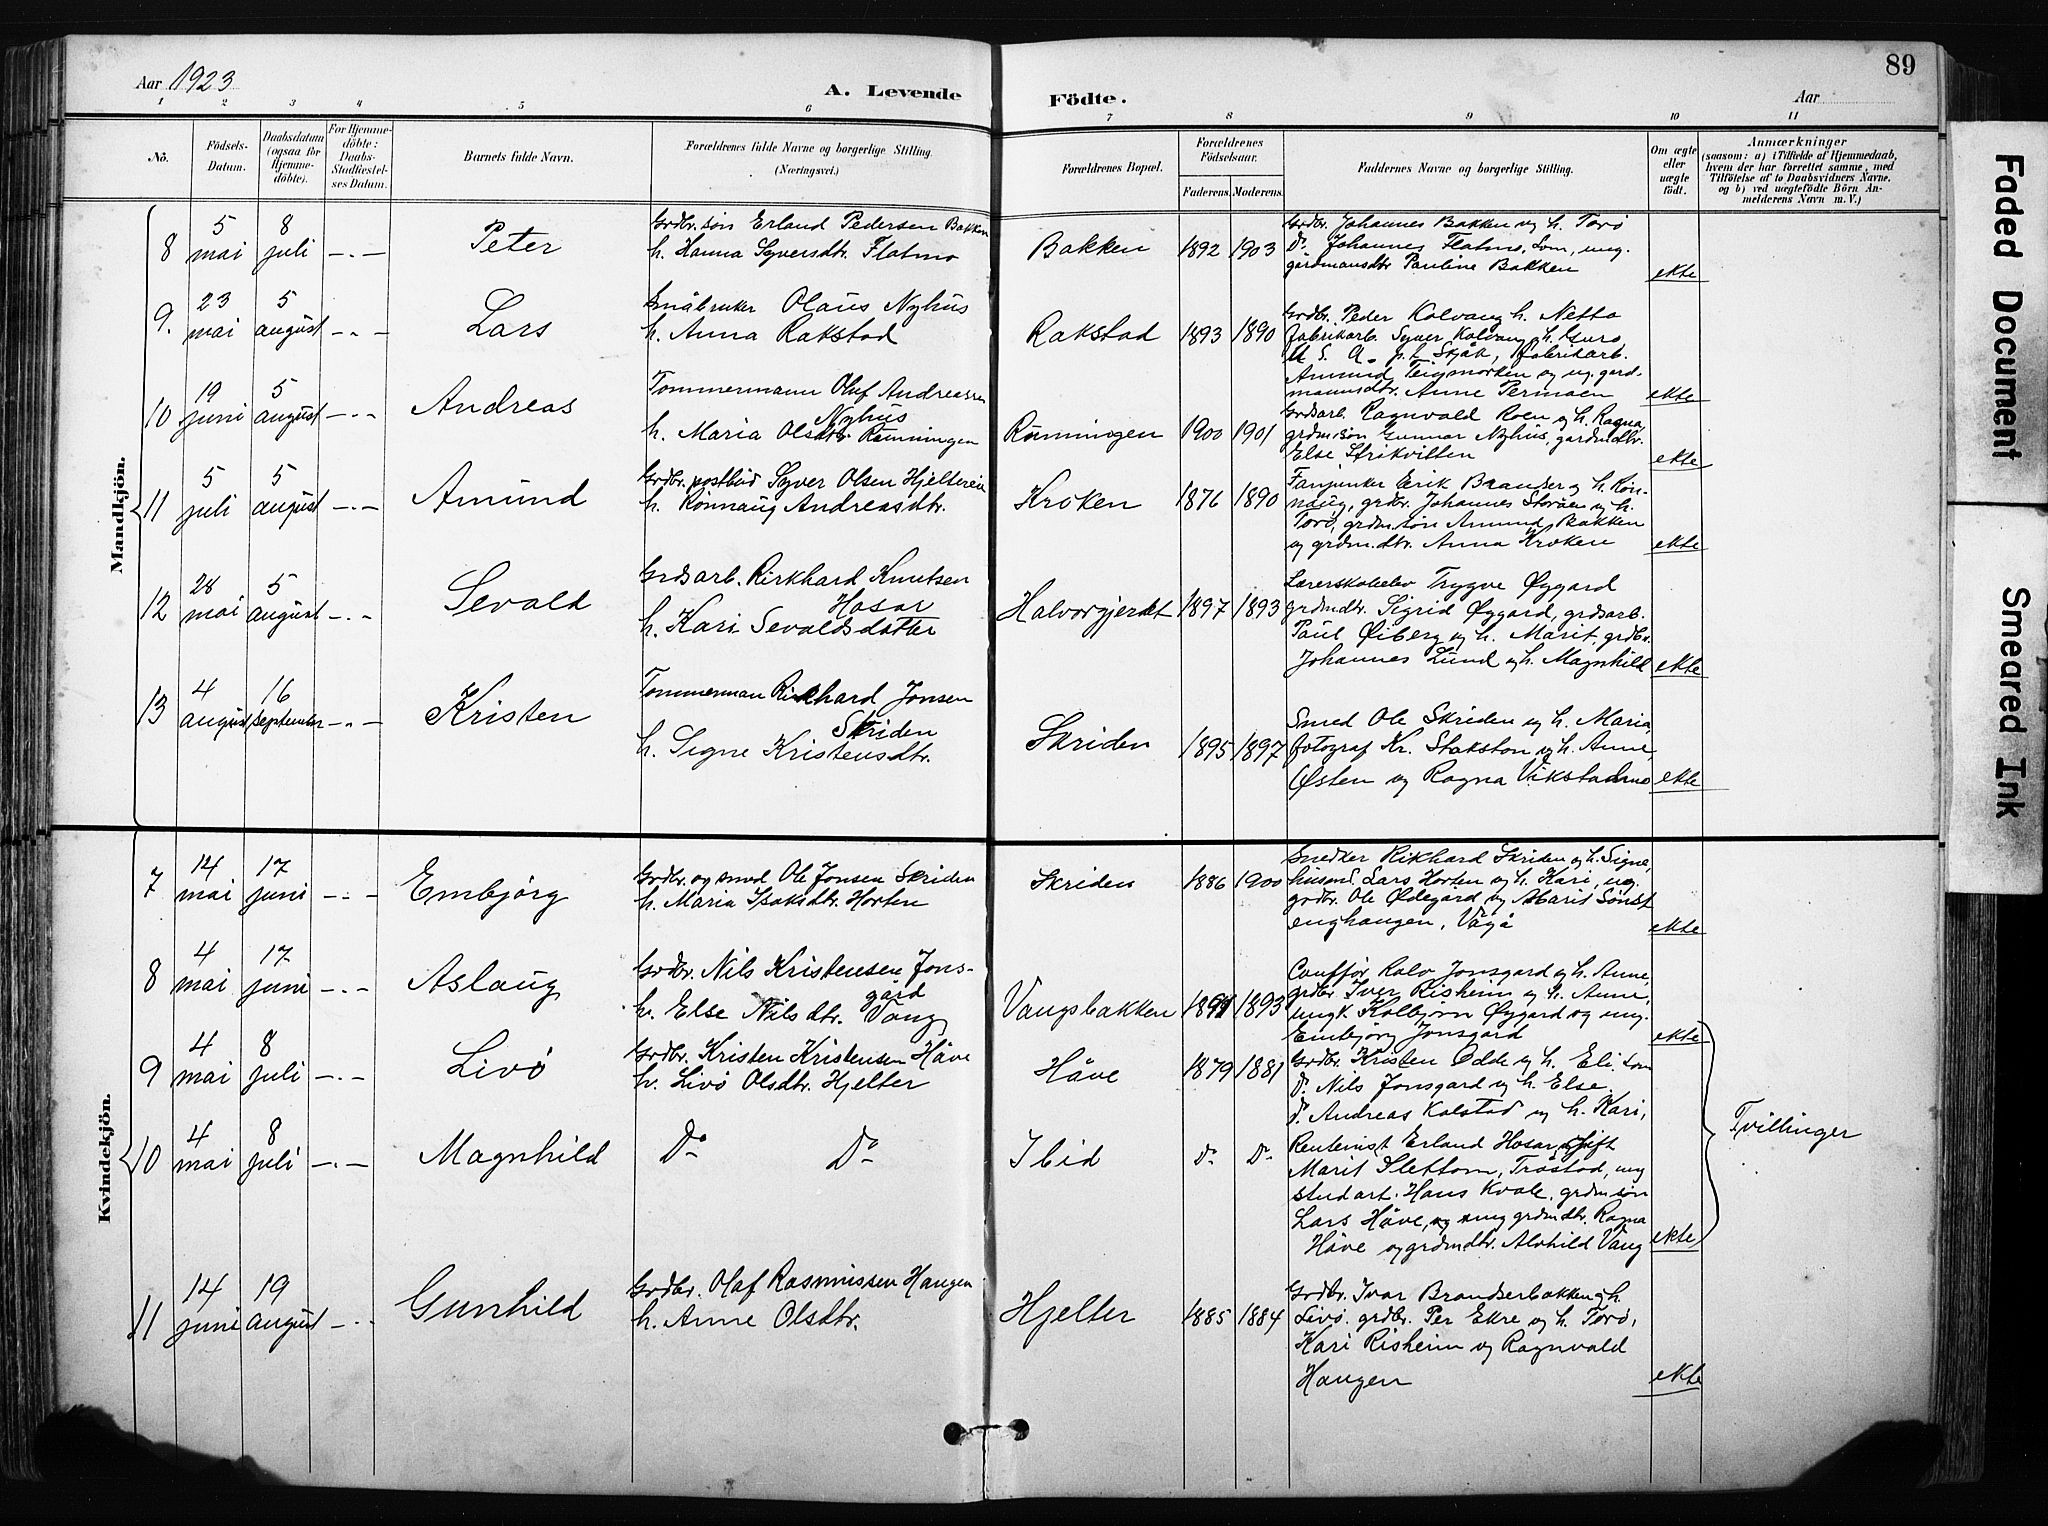 89
Aar 1923
A. Levende Födte.
Aar
1 2 3 4 5 6 7 8 9 10 11
No.
Födsels-Datum.
Daabsdatum (ogsaa for Hjemme-döbte).
For Hjemme-döbte: Daabs-Stadfæstel-ses Datum.
Barnets fulde Navn.
Forældrenes fulde Navne og borgerlige Stilling. (Næringsvei.)
Forældrenes Bopæl.
Forældrenes Födselsaar.
Faderens. Moderens.
Faddernes Navne og borgerlige Stilling.
Om ægte eller uægte födt.
Anmærkninger
(saasom: a) i Tilfælde af Hjemmedaab,
hvem der har forrettet samme, med
Tilföielse af to Daabsvidners Navne,
og b) ved uægtefödte Börn An-
melderens Navn m. V.)
Mandkjön.
8 5 mai 8 juli -.- Peter
Grdbr. sön Erland Pedersen Bakken
h. Hanna Syversdtr. Flatmo
Bakken 1892 1903
Grdbr. Johannes Bakken og h. Torö
Do Johannes Flatmo, Lom, ug.
gårdmansdtr Pauline Bakken
ekte
9. 23 mai 5 august -.- Lars
Småbruker Olaus Nyhus
h. Anna Rakstad
Rakstad 1893 1890
Grdbr. Peder Kolvang h. Netta
fabrikarb. Syver Kolvang h. Guro
U. S. A. p. t. Skjåk, fabrikarb.
Amund Teigmorken og ug. gard-
mannsdtr. Anne Permoen
ekte
10 19 juni 5 august -.- Andreas
Tommermann Olaf Andreassen
Nyhus
h. Maria Olsdtr. Runningen
Runningen 1900 1901
Grdsarb. Ragnvald Roen og h. Ragna,
grdm.sön Gunnar Nyhus, gardmdtr.
Else Strikvitten
ekte
11 5 juli 5 august -.- Amund
Grdbr. postbud Syver Olsen
h. Rönnaug Andreasdtr.
Kroken 1876 1890
Fanjunker Erik Brandser og h. Rön-
naug, grdbr. Johannes Storöen og h.
Torö, grdm.sön Amund Bakken
og grdm.dtr. Anna Kroken
ekte
12 28 mai 5 august -.- Sevald
Grdsarb. Rirkhard Knutsen
Hosar
h. Kari Sevaldsdatter
Halvorgjerdet 1897 1893
Lærerskoleelev Trygve Øygard
grdmdtr. Sigrid Øygard, grdsarb.
Paul Øiberg og h. Marit, grdbr.
Johannes Lund og h. Magnhild
ekte
13 4 august 16 september -.- Kristen
Tommerman Rikhard Jonsen
Skriden
h. Signe Kristensdtr.
Skriden 1895 1897
Smed Ole Skriden og h. Maria,
fotograf Kr. Stakston og h. Anne,
Østen og Ragna Vikstadmo
ekte
Kvindekjön.
7 14 mai 17 juni -.- Embjörg
Grdbr. og smed Ole Jonsen Skriden
h. Maria Isaksdtr. Horten
Skriden 1886 1900
Snedker Rikhard Skriden og h. Signe,
husmd. Lars Horten og h. Kari, ug.
grdbr. Ole Ødegård og Marit Sönst
enghaugen, Vågå
ekte
8 4 mai 17 juni -.- Aslaug
Grdbr. Nils Kristensen Jons-
gård
h. Else Nilsdtr. Vang
Vangsbakken 1893
Caufför Rolv Jonsgard og h. Anne,
grdbr Iver Risheim og h. Anne,
ungk. Kolbjörn Øygard og ug.
Embjörg Jonsgard
ekte
9 4 mai 8 juli -.- Livö
Grdbr. Kristen Kristensen Håve
h. Livö Olsdtr. Hjelter
Håve 1879 1881
Grdbr. Kristen Odde og h. Eli. Lom
Do. Nils Jonsgard og h. Else.
Do. Andreas Kolstad og h. Kari,
10 4 mai 8 juli -.- Magnhild
Do Do
Ibid Do Do
Rentenist Erland Hosar, gift
Marit Slettom, Tröstad, ug
stud art. Hans Kvale, grdm sön
Lars Håve, og ung grdmdtr. Ragna
Håve og grdmdtr. Alvhild Vang
ekte,
Tvillinger
11 14 juni 19 august -.- Gunhild
Grdbr. Olaf Rasmussen Haugen
h. Anne Olsdtr.
Hjelter 1885 1884
Grdbr. Ivar Brandserbakken og h.
Livö. grdbr. Per Ekre og h. Torö,
Kari Risheim og Ragnvald
Haugen
ekte
Faded Document
Smeared Ink